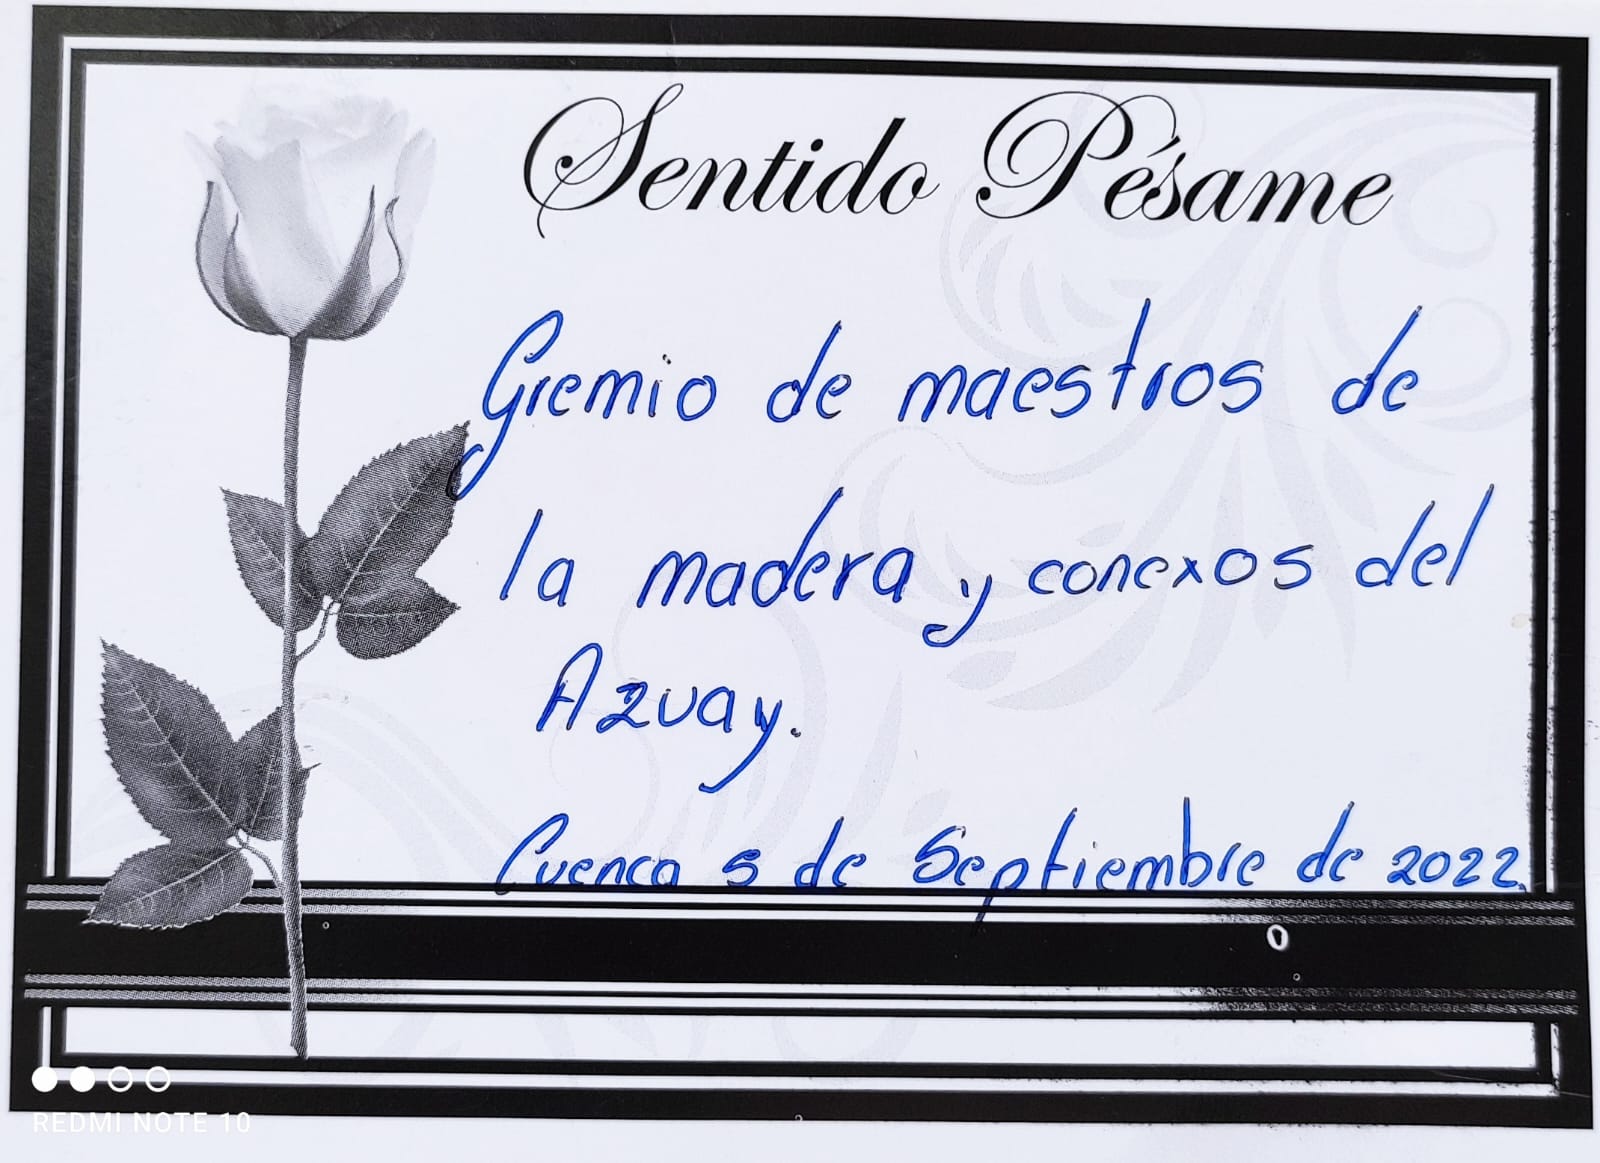 Sentido Pésame
Gremio de maestros de
la madera y conexos del
Azuay.
Cuenca 5 de Septiembre de 2022.
REDMI NOTE 10